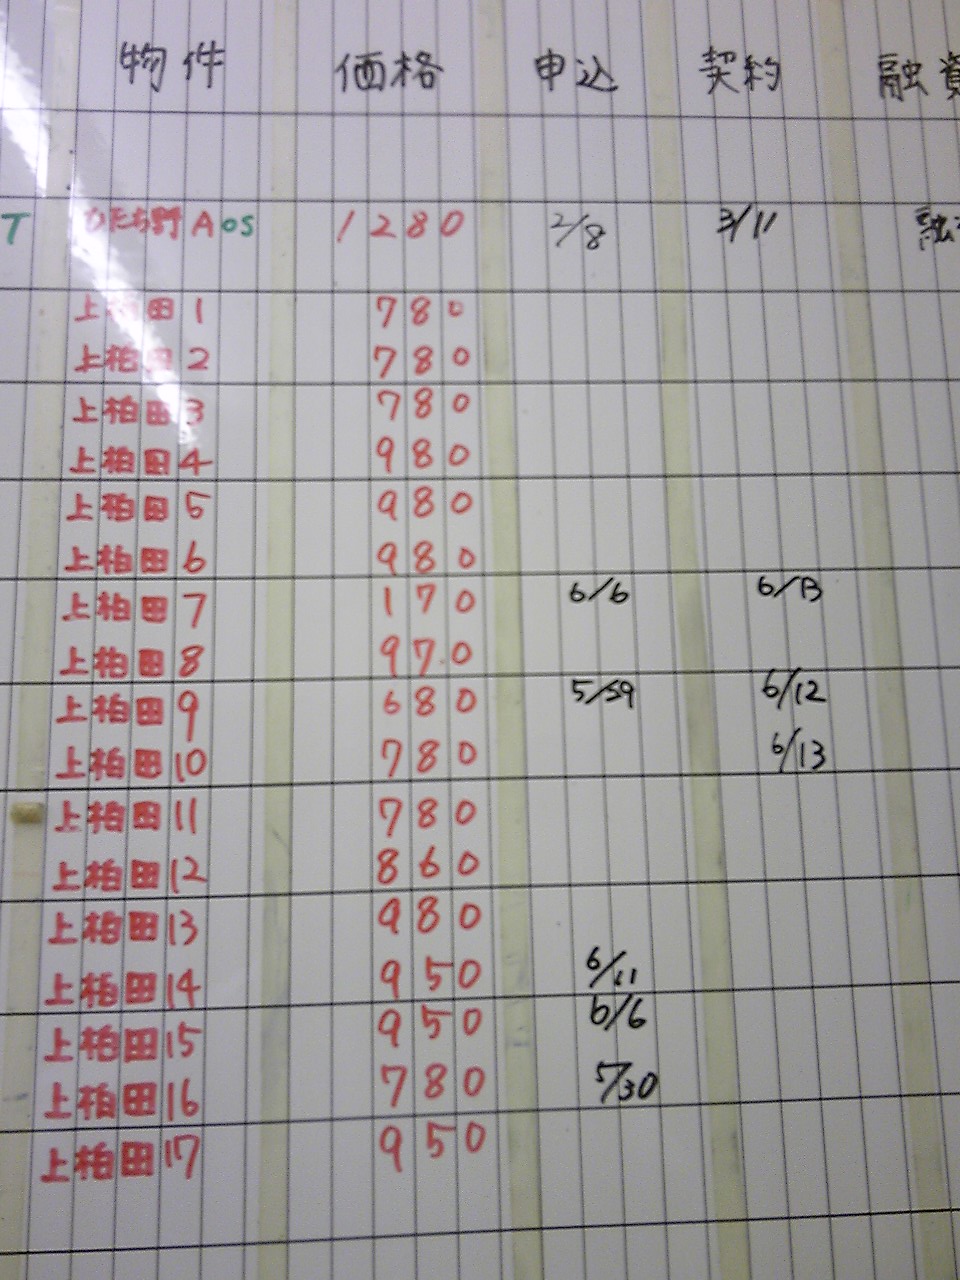 物件 価格 申込 契約 融資
T ひたち野AOS 1280 2/8 3/11
上柏田1 780
上柏田2 780
上柏田3 780
上柏田4 980
上柏田5 980
上柏田6 980
上柏田7 170 6/6 6/13
上柏田8 970
上柏田9 680 5/59 6/12
上柏田10 780 6/13
上柏田11 780
上柏田12 860
上柏田13 980
上柏田14 950 6/11
上柏田15 950 6/6
上柏田16 780 5/30
上柏田17 950